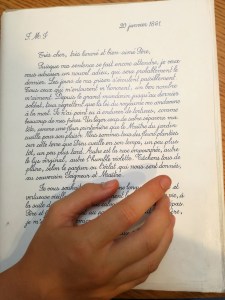 J. M. J
20 janvier 1861
Très cher, très honoré et bien-aimé Père,
Puisque ma sentence se fait encore attendre, je veux
vous adresser un nouvel adieu, qui sera probablement le
dernier. Les jours de ma prison s'écoulent paisiblement.
Tous ceux qui m'entourent m'honorent, un bon nombre
m'aiment. Depuis le grand mandarin jusqu'au dernier
soldat, tous regrettent que la loi du royaume me condamne
à la mort. Je n'ai point eu à endurer de tortures, comme
beaucoup de mes frères. Un léger coup de sabre séparera ma
tête, comme une fleur printanière que le Maître du jardin
cueille pour son plaisir. Nous sommes tous des fleurs plantées
sur cette terre que Dieu cueille en son temps, un peu plus
tôt, un peu plus tard. Autre est la rose empourprée, autre
le lys virginal, autre l'humble violette. Tâchons tous de
plaire, selon le parfum ou l'éclat qui nous sont donnés,
au souverain Seigneur et Maître.
Je vous